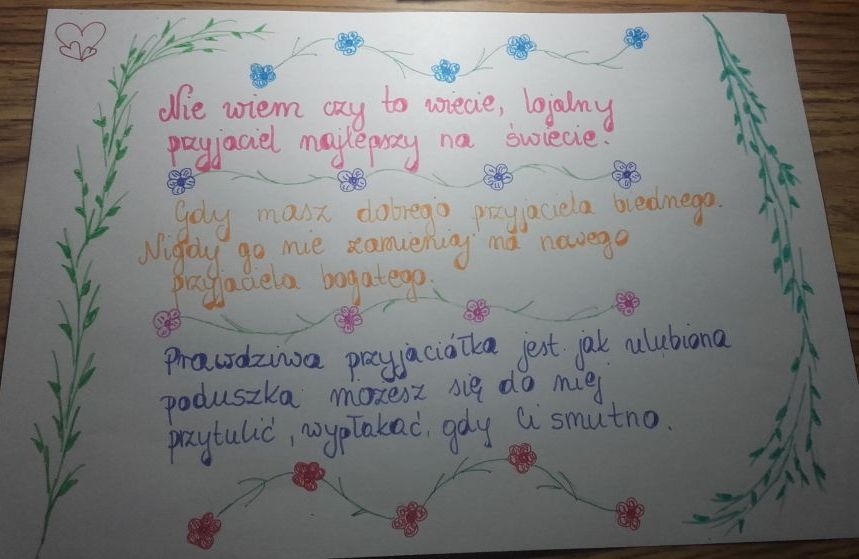 Nie wiem czy to wiecie, lojalny
przyjaciel najlepszy na świecie.
Gdy masz dobrego przyjaciela biednego.
Nigdy go nie zamieniaj na nowego
przyjaciela bogatego.
Prawdziwa przyjaciółka jest jak ulubiona
poduszka możesz się do niej
przytulić, wypłakać, gdy Ci smutno.